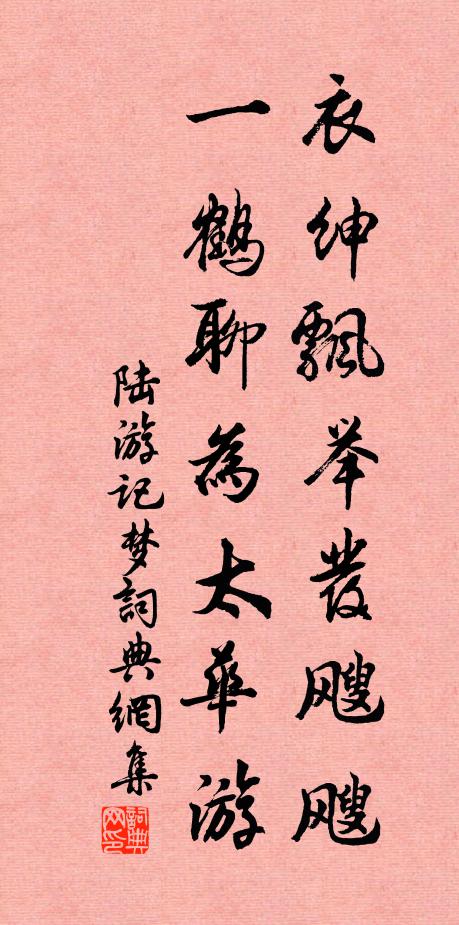 衣绅飘举发飕飕
一鹤聊为太华游
陆游记梦词典网集
词典网印